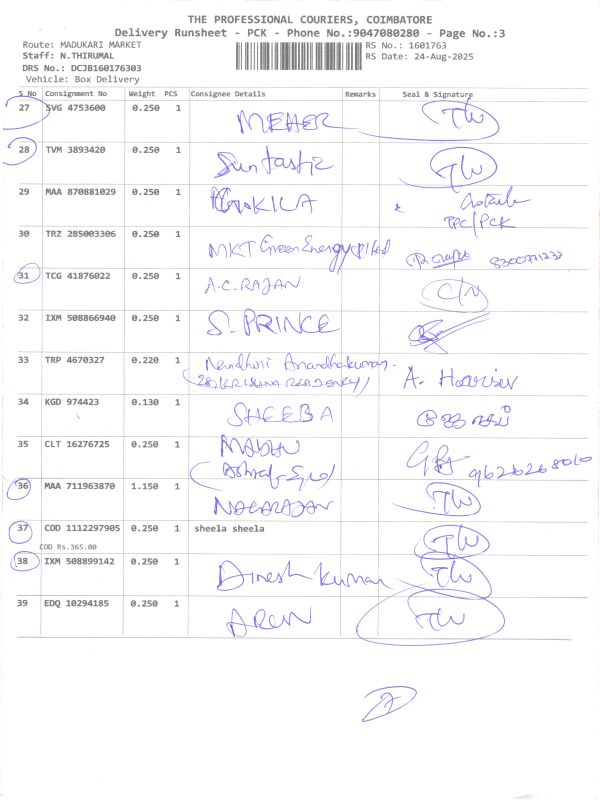 THE PROFESSIONAL COURIERS, COIMBATORE
Delivery Runsheet - PCK - Phone No.:9047080280 - Page No.:3
Route: MADUKARI MARKET
RS No.: 1601763
Staff: N.THIRUMAL
RS Date: 24-Aug-2025
DRS No.: DCJB160176303
Vehicle: Box Delivery
S No Consignment No Weight PCS Consignee Details Remarks Seal & Signature
27 SVG 4753600 0.250 1 MEHER TW
28 TVM 3893420 0.250 1 Suntastic TW
29 MAA 870881029 0.250 1 GOKILA
TPC/PCK
30 TRZ 285003306 0.250 1 MKT Green Energy
31 TCG 41876022 0.250 1 A.C.RAJAN C/N
32 IXM 508866940 0.250 1 S.PRINCE
33 TRP 4670327 0.220 1 Nandhini Anandhakumar A.
28, KRISHNA RESIDENCY
34 KGD 974423 0.130 1 SHEEBA
35 CLT 16276725 0.250 1 MADAN
36 MAA 711963870 1.150 1 NAGARAJAN TW
37 COD 1112297905 0.250 1 sheela sheela TW
COD Rs.365.00
38 IXM 508899142 0.250 1 Dinesh kumar TW
39 EDQ 10294185 0.250 1 ARUN TW